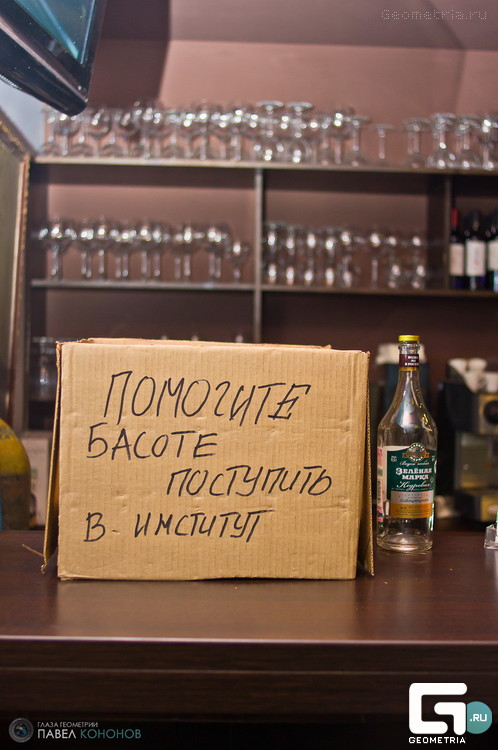 Geometria.ru
ПОМОГИТЕ
БАСОТЕ
ПОСТУПИТЬ
В-ИМСТИТУТ
ЗЕЛЁНАЯ
МАРКА
Кедровая
ГЛАЗА ГЕОМЕТРИИ
ПАВЕЛ КОНОНОВ
.RU
GEOMETRIA